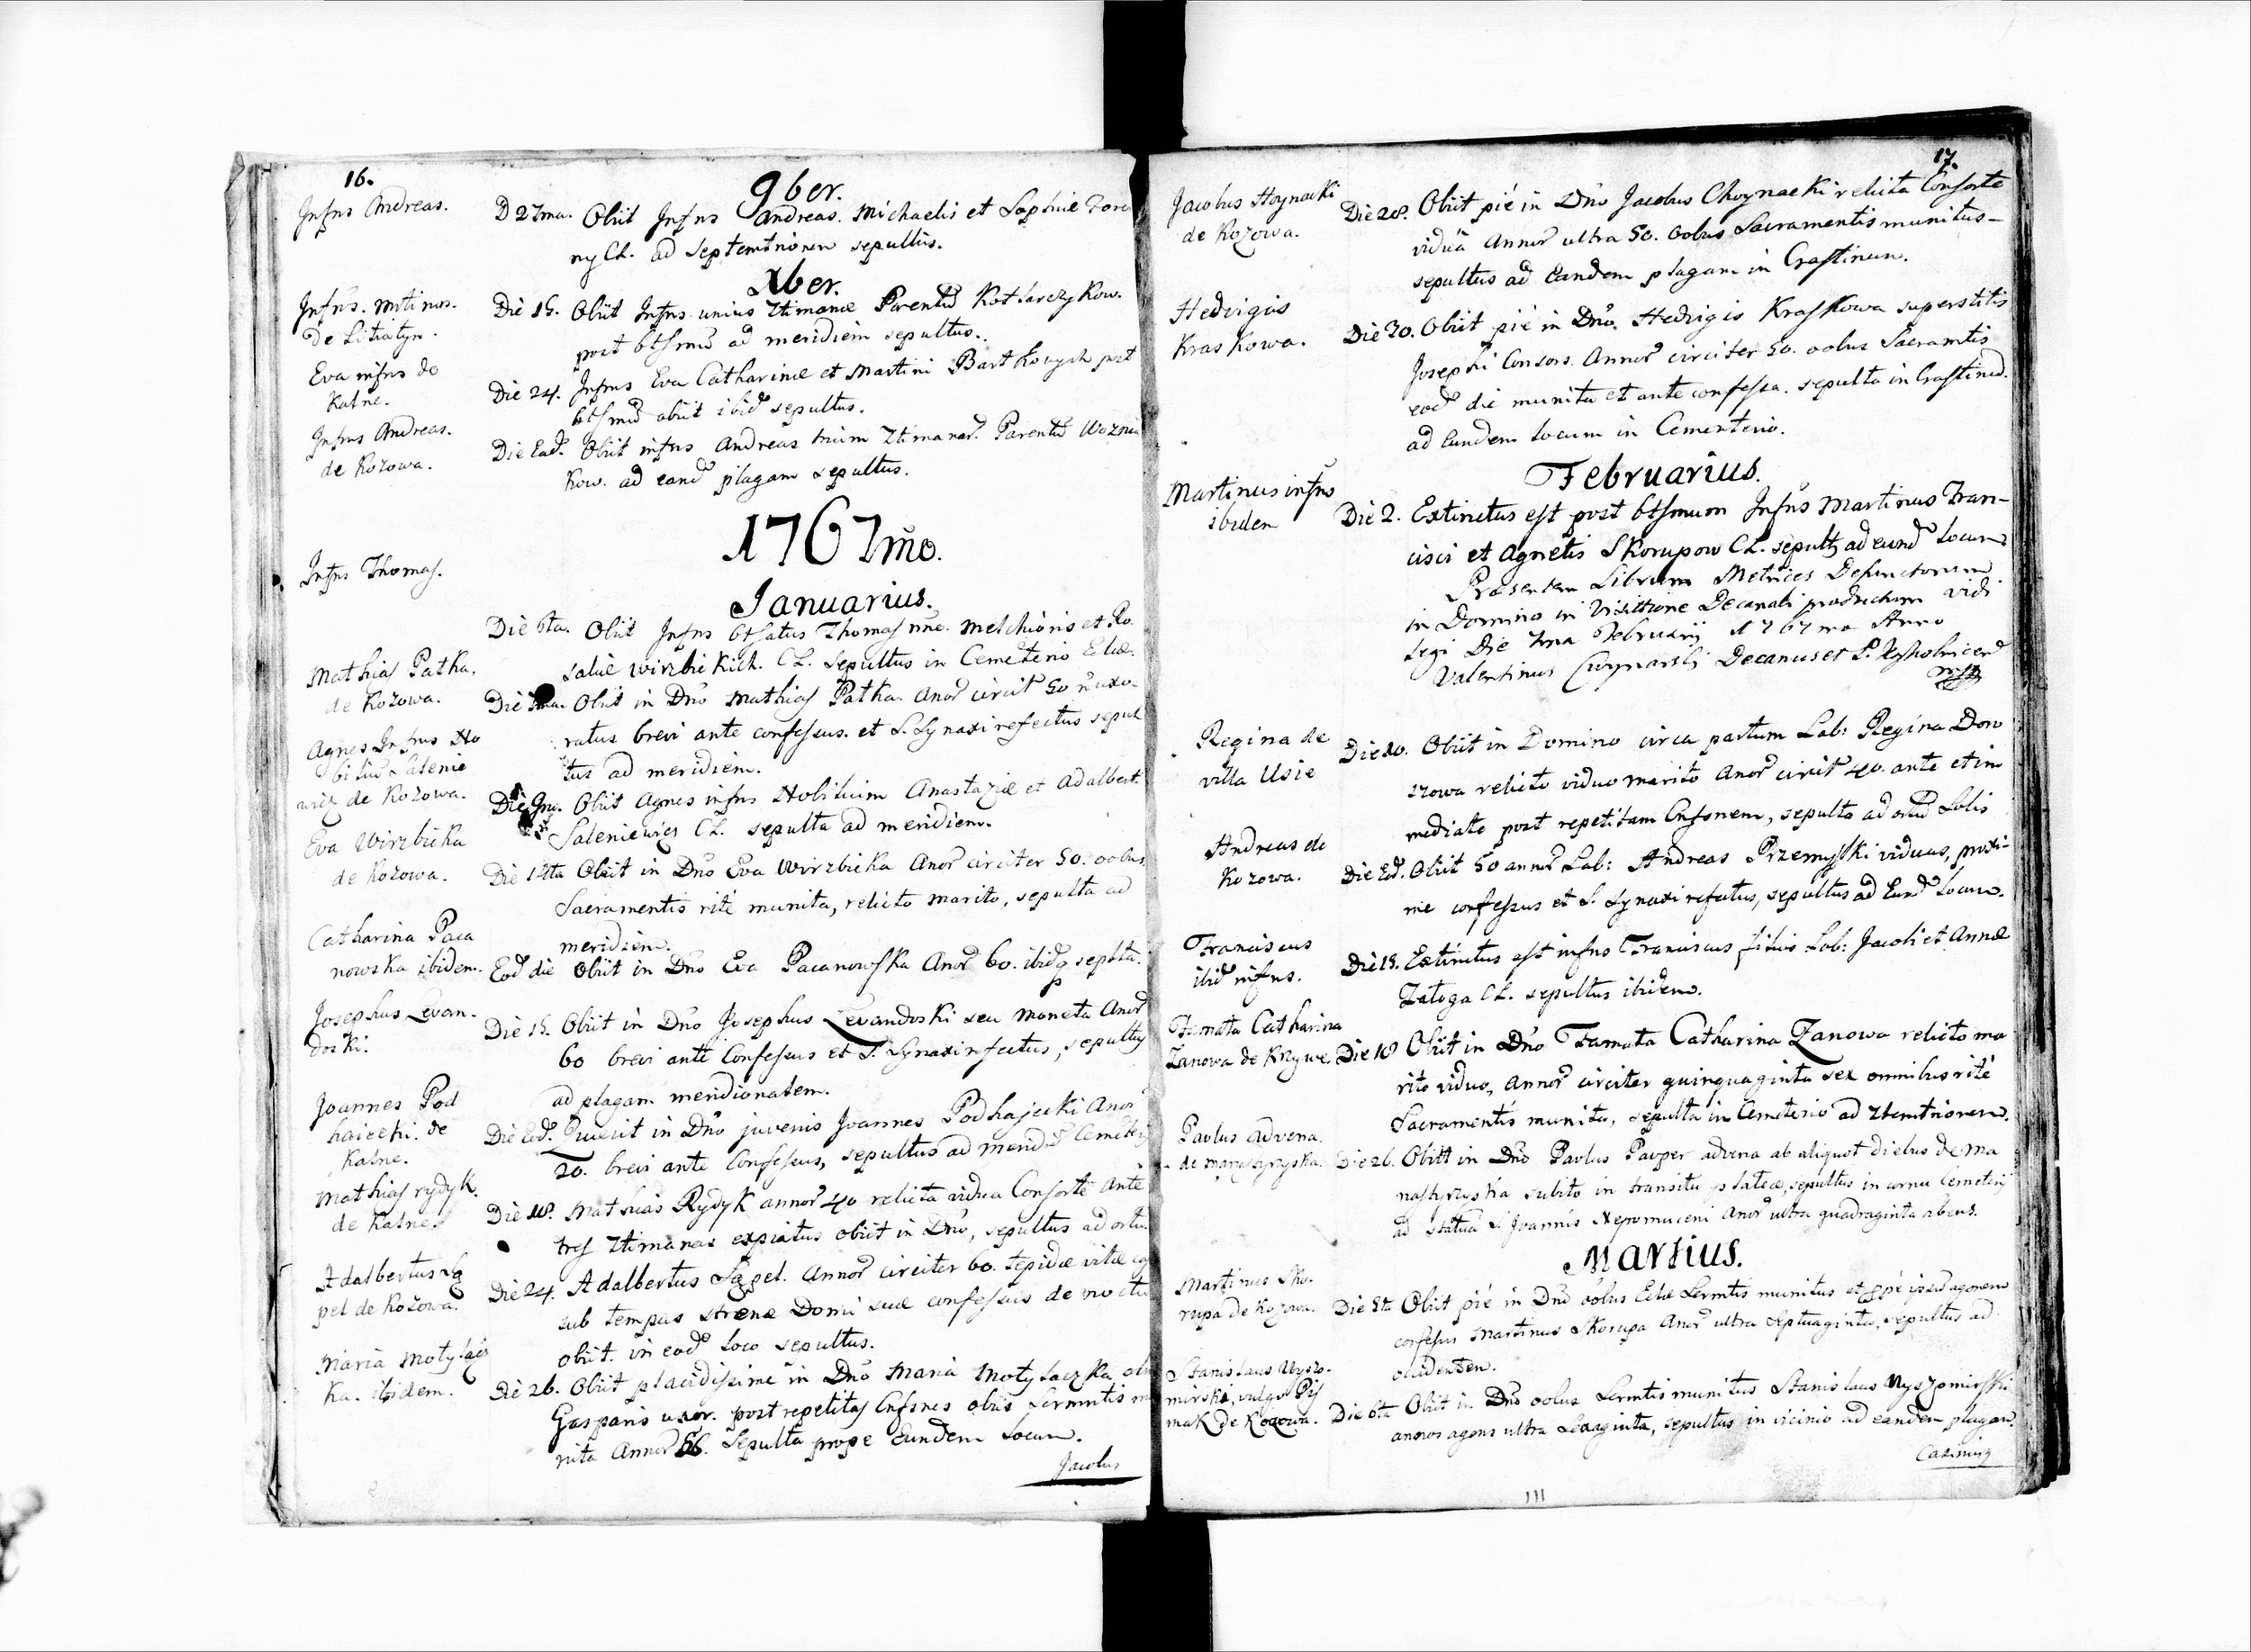 16.
9ber.
Infns Andreas.
D 27ma. Obiit Infns Andreas. Michaelis et Sophiæ
nyCL. ad Septemtrionem sepultus.
Xber.
Infns. Mtinus.
de Litiatyn.
Die 15. Obiit Infns unius 7timanæ Parentũ Kotlarczykow.
post btsmũ ad meridiem sepultus.
Eva infns de
Kalne.
Die 24. Infns Eva Catharinæ et Martini Bartkowych post
btsmũ obiit ibid sepultus.
Infns Andreas.
de Kozowa.
Die Ead. Obiit infns Andreas trium 7timanar. Parentũ Woznia
kow. ad eand plagam sepultus.
1767mo.
Januarius.
Infns Thomas.
Die 6ta. Obiit Infns btsatus Thomas nne. Melchioris et Ro
saliæ Wirzbickich. CL. Sepultus in Cemeterio Eclæ.
Mathias Patka.
de Kozowa.
Obiit in Dno Mathias Patka. Anor circit 50 uxo-
ratus brevi ante confessus. et S. Synaxi refectus sepul
tus ad meridiem.
Agnes Infns No
biliũ Salenie
wicz de Kozowa.
Die 9na. Obiit Agnes infns Nobilium Anastaziæ et Adalbert.
Saleniewicz CL. sepulta ad meridiem.
Eva Wirzbicka
de Kozowa.
Obiit in Dno Eva Wirzbicka Anor circiter 50. oobus
Sacramentis rité munita, relicto marito, sepulta ad
meridiem.
Catharina Paca
nowska ibidem.
Eod die Obiit in Dno Eva Pacanowska Anor 60. ibidq septa.
Josephus Levan-
doski.
Die 15. Obiit in Dno Josephus Levandoski seu Moneta Anor
60 brevi anté Confessus et S. Synaxi refectus, sepultus
ad plagam meridionalem.
Joannes Pod
haiecki. de
Kalne.
Die Ed. Quievit in Dno juvenis Joannes Podhajecki Anor
20. brevi ante Confessus, sepultus ad merid Cemeterij
Mathias rydyk.
de Kalne.
Die 18. Mathias Rydyk annor 40 relicta vidua Consorte Ante
tres 7timanas expiatus obiit in Dno, sepultus ad ortu.
Adalbertus Sę
pel de Kozowa.
Die 24. Adalbertus Sępel. Annor circiter 60. tepidæ vitæ
sub tempus strenæ Domi suæ confessus de noctu
obiit. in eod loco sepultus.
Maria Motylacz
ka. ibidem.
Die 26. Obiit placidissimé in Dno Maria Motylaczka
Gasparis uxor. post repetitas Cnfsnes obiis Scrmntis mu
nita Annor 56. Sepulta prope Eundem Locum.
Jacobus
17.
Jacobus Hoynacki
de Kozowa.
Die 28. Obiit pié in Dno Jacobus Choynacki relicta Consorte
viduâ Annor ultra 50. oobus Sacramentis munitus-
sepultus ad Eandem plagam in Crastinum.
Hedvigis
Kraskowa.
Die 30. Obiit pié in Dno. Hedvigis Kraskowa superstitis
Josephi Consors. Annor circiter 50. oobus Sacramtis
eod die munita et ante confessa. sepulta in Crastinud.
ad Eundem locum in Cementerio.
Februarius.
Martinus infns
ibidem
Die 2. Extinctus est post btsmum Infns Martinus Fran-
cisci et Agnetis Skorupow CL. sepults ad eund Locum
Præsentem Librum Metrices Defunctorum
in Domino in Visittione Decanali productum vidi
legi Die 7ma Februarij 1767mo Anno
Valentinus Cwynarski Decanus et P.
Regina de
villa Usie
Die 10. Obiit in Domino circa partum Lab: Regina Dow
rzowa relicto viduo marito Anor circit 40. ante et im
mediate post repetitam Cnfsnem, sepulta ad ortũ Solis
Andreas de
Kozowa.
Die Ed. Obiit 50 annor Lab: Andreas Przemyski viduus, proxi-
me confessus et S. Synaxi refectus, sepultus ad Eund Locum.
Franciscus
ibid infns.
Die 15. Extinctus est infns Franciscus filius Lab: Jacobi et Annæ
Załoga CL. sepultus ibidem.
Famata Catharina
Zanowa de Krzywe
Die 18 Obiit in Dno Famata Catharina Zanowa relicto ma
rito viduo, Annor circiter quinquaginta sex omnibus rité
Sacramentis munita, sepulta in Cemeterio ad 7temtrionem.
Paulus Advena.
de manasterzyska.
Die 26. Obiit in Dno Paulus Pauper advena ab aliquot diebus de Ma
nasterzyska subito in transitu plateæ, sepultus in cornu Cemeterij
ad statuã S Joannis Nepomuceni Anor ultra quadraginta abens.
Martius.
Martinus Sko-
rupa de Kozowa.
Die 5ta Obiit pié in Dno oobus Eclæ Scrmtis munitus et spé ipsũ agonem
confessus Martinus Skorupa Anor ultra septuaginta, sepultus ad
occidentem.
Stanislaus Wyszo-
mirski, vulgo Pis
mak de Kozowa.
Die 6ta Obiit in Dno oobus Scrmtis munitus Stanislaus Wyszomirski
annos agens ultra Sexaginta, sepultus in vicinio ad eandem plagam.
Casimirg
111